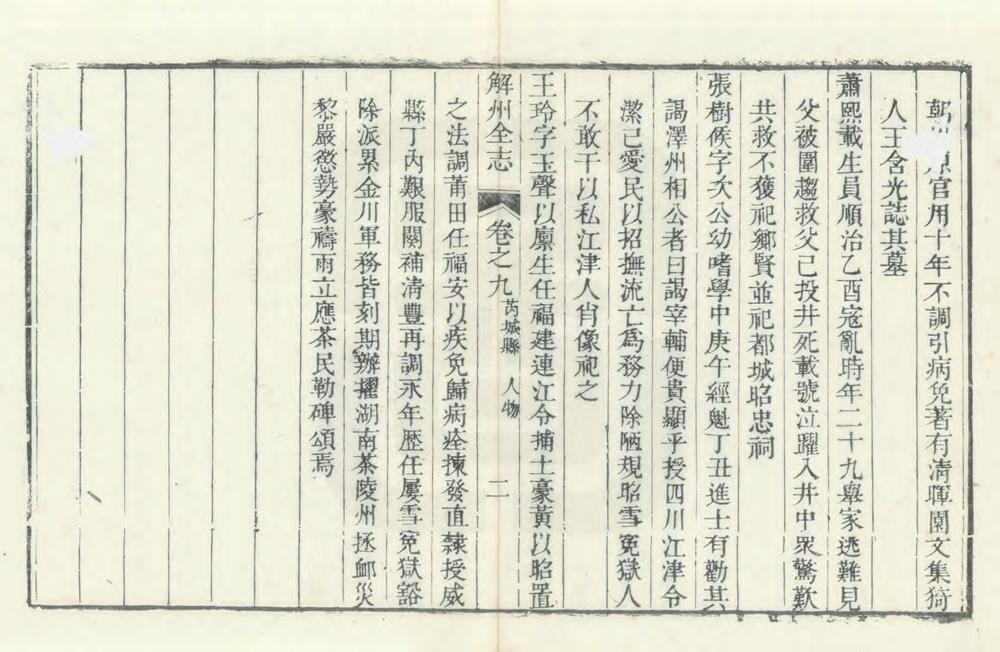 朝官用十年不調引病免著有清暉園文集猗
人王含光誌其墓
蕭熙載生員順治乙酉寇亂時年二十九舉家逃難見
父被圍趨救父已投井死載號泣躍入井中眾驚歎
共救不獲祀鄉賢並祀都城昭忠祠
張樹候字次公幼嗜學中庚午經魁丁丑進士有勸其
謁澤州相公者曰謁宰輔便貴顯乎授四川江津令
潔己愛民以招撫流亡為務力除陋規昭雪冤獄人
不敢干以私江津人肖像祀之
王玲字玉聲以廩生任福建連江令捕土豪黃以昭置
解州全志 卷之九 芮城縣 人物 二
之法調莆田任福安以疾免歸病痊揀發直隸授威
縣丁內艱服闋補清豐再調永年歷任屢雪冤獄豁
除派累金川軍務皆刻期辦擢湖南茶陵州拯卹災
黎嚴懲勢豪禱雨立應茶民勒碑頌焉